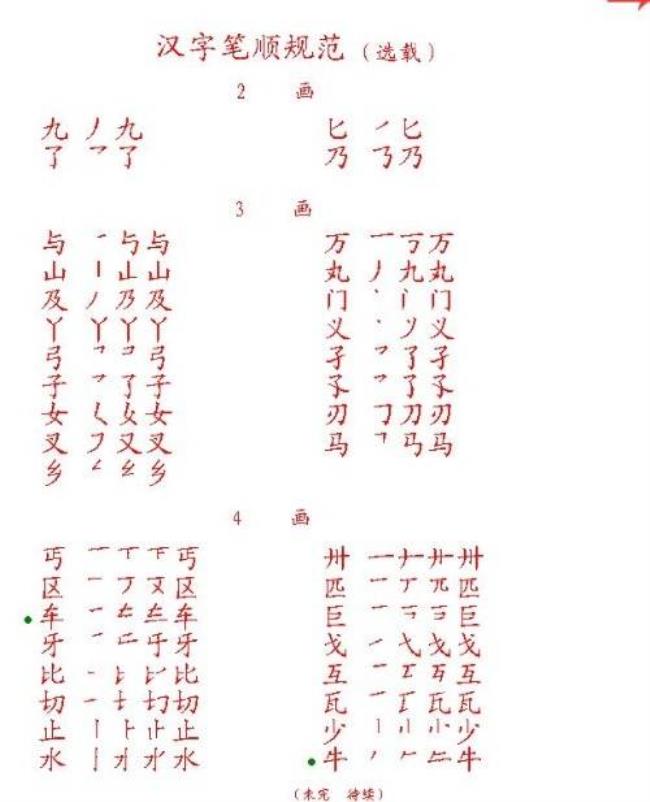 汉字笔顺规范（选载）
2 画
九 丿 九 匕 ㇒ 匕
了 乛 了 乃 乃
3 画
与 一 与 与 万 一 丆 万
山 丨 山 丸 丿 九 丸
及 丿 乃 及 门 丶 门
丫 丫 丫 丫 义 丶 义
弓 乛 弓 孑 乛 了 孑
子 乛 了 子 孓 乛 了 孓
女 女 刃 刀 刃
叉 又 叉 马 马
乡 乡
4 画
丐 一 丅 丐 卅 一 卅
区 一 区 匹 一 丆 兀 匹
车 一 车 巨 一 巨
牙 一 牙 戈 一 弋 戈 戈
比 一 比 互 一 互
切 一 切 瓦 一 瓦
止 丨 止 少 丨 小 少
水 亅 水 牛 丿 𠂉 牛
（未完 待续）